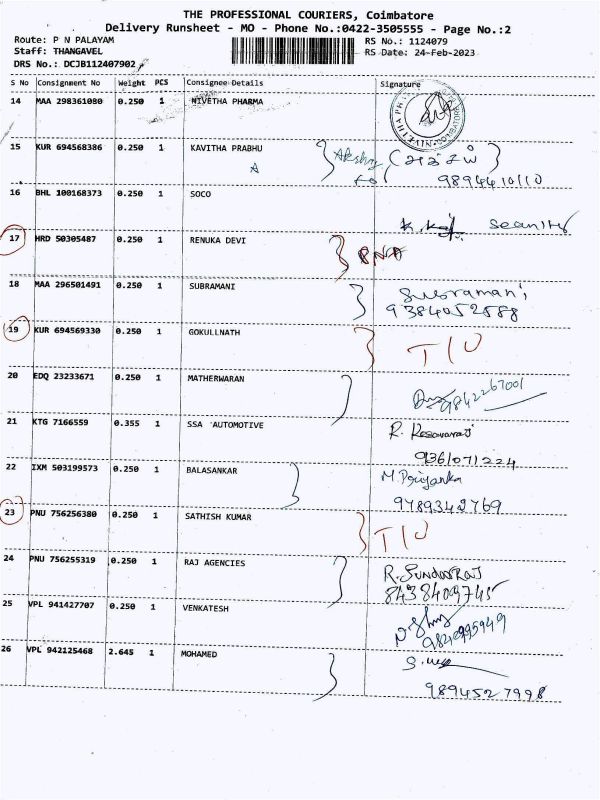 THE PROFESSIONAL COURIERS, Coimbatore
Delivery Runsheet - MO - Phone No.:0422-3505555 - Page No.:2
Route: P N PALAYAM RS No.: 1124079
Staff: THANGAVEL RS Date: 24-Feb-2023
DRS No.: DCJB112407902
S No Consignment No Weight PCS Consignee Details Signature
14 MAA 298361080 0.250 1 NIVETHA PHARMA
15 KUR 694568386 0.250 1 KAVITHA PRABHU
A 9894410110
16 BHL 100168373 0.250 1 SOCO
17 HRD 50305487 0.250 1 RENUKA DEVI PNA
18 MAA 296501491 0.250 1 SUBRAMANI Subramani
9384052588
19 KUR 694569330 0.250 1 GOKULLNATH T/U
20 EDQ 23233671 0.250 1 MATHERWARAN 9842267001
21 KTG 7166559 0.355 1 SSA AUTOMOTIVE R.
9361071224
22 IXM 503199573 0.250 1 BALASANKAR M. Priyanka
9789342769
23 PNU 756256380 0.250 1 SATHISH KUMAR T/U
24 PNU 756255319 0.250 1 RAJ AGENCIES R. SUNDARRAJ
8438409745
25 VPL 941427707 0.250 1 VENKATESH
9840995949
26 VPL 942125468 2.645 1 MOHAMED
9894527998